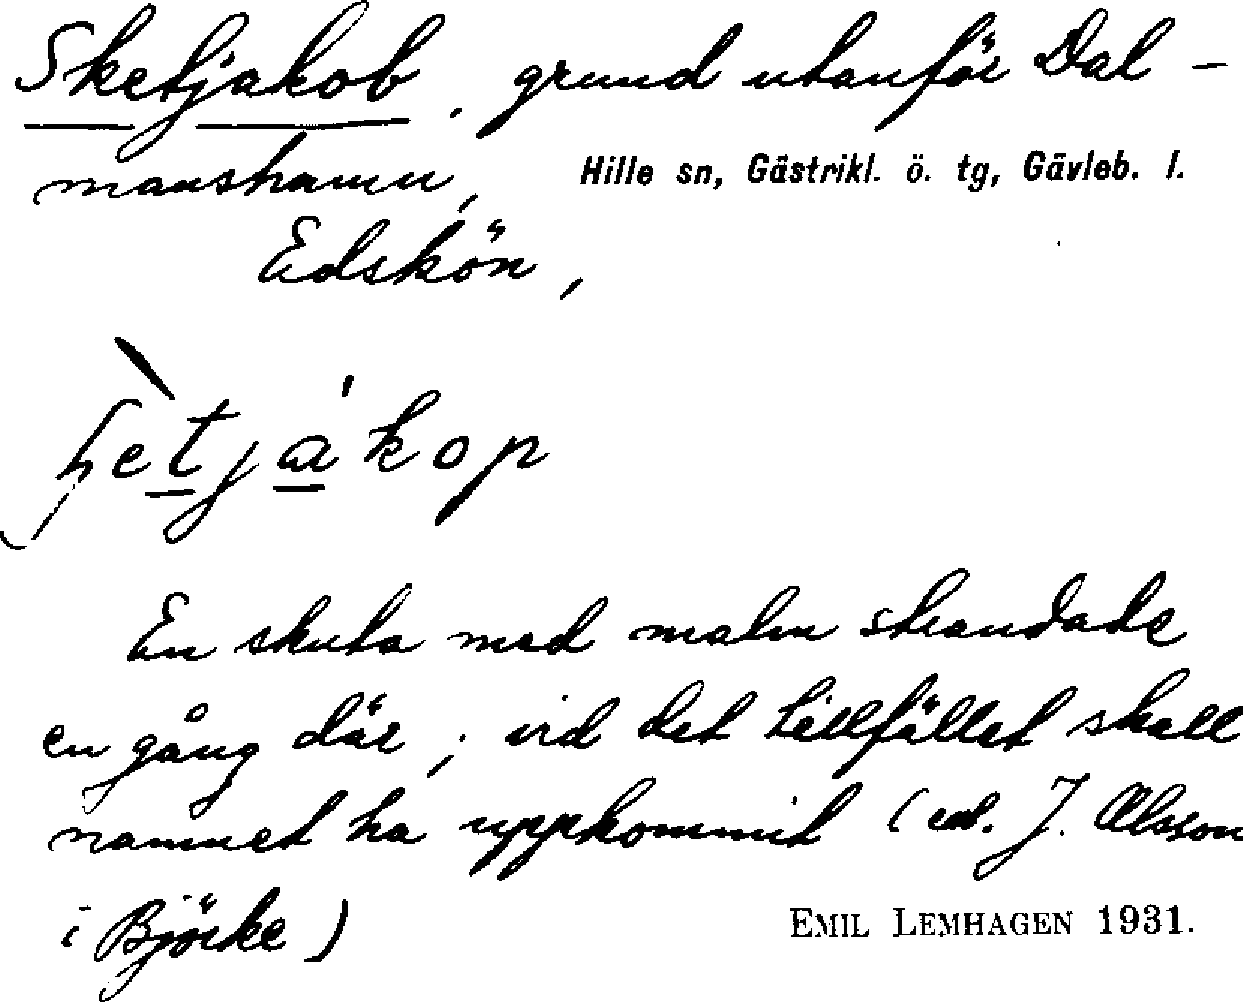 Sketjakob, grund utanför Dal-
manshamn, Hille sn, Gästrikl. ö. tg, Gävleb. l.
Edskön,
En skuta med malm strandade
en gång där; vid det tillfället skall
namnet ha uppkommit (enl. J. Olsson
i Björke)
EMIL LEMHAGEN 1931.